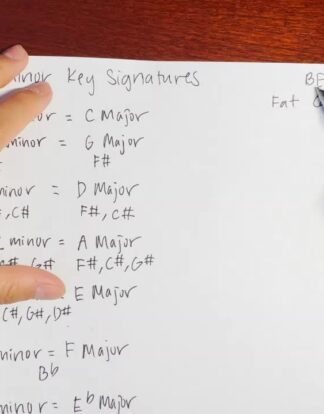 minor Key Signatures
BF
Fat
or = C Major
minor = G Major
F#
minor = D Major
#, C# F#, C#
minor = A Major
G# F#, C#, G#
= E Major
C#, G#, D#
minor = F Major
Bb
minor = Eb Major